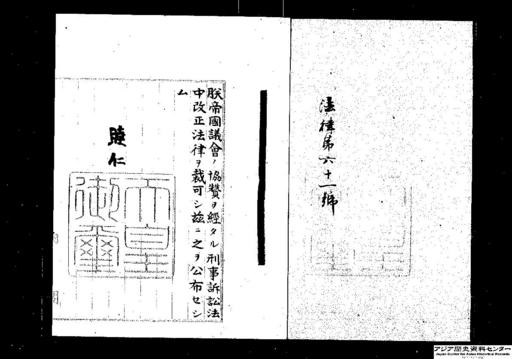 法律第六十一號
朕帝國議會ノ協贊ヲ經タル刑事訴訟法
中改正法律ヲ裁可シ茲ニ之ヲ公布セシ
ム
睦仁
天皇
御璽
アジア歴史資料センター
Japan Center for Asian Historical Records